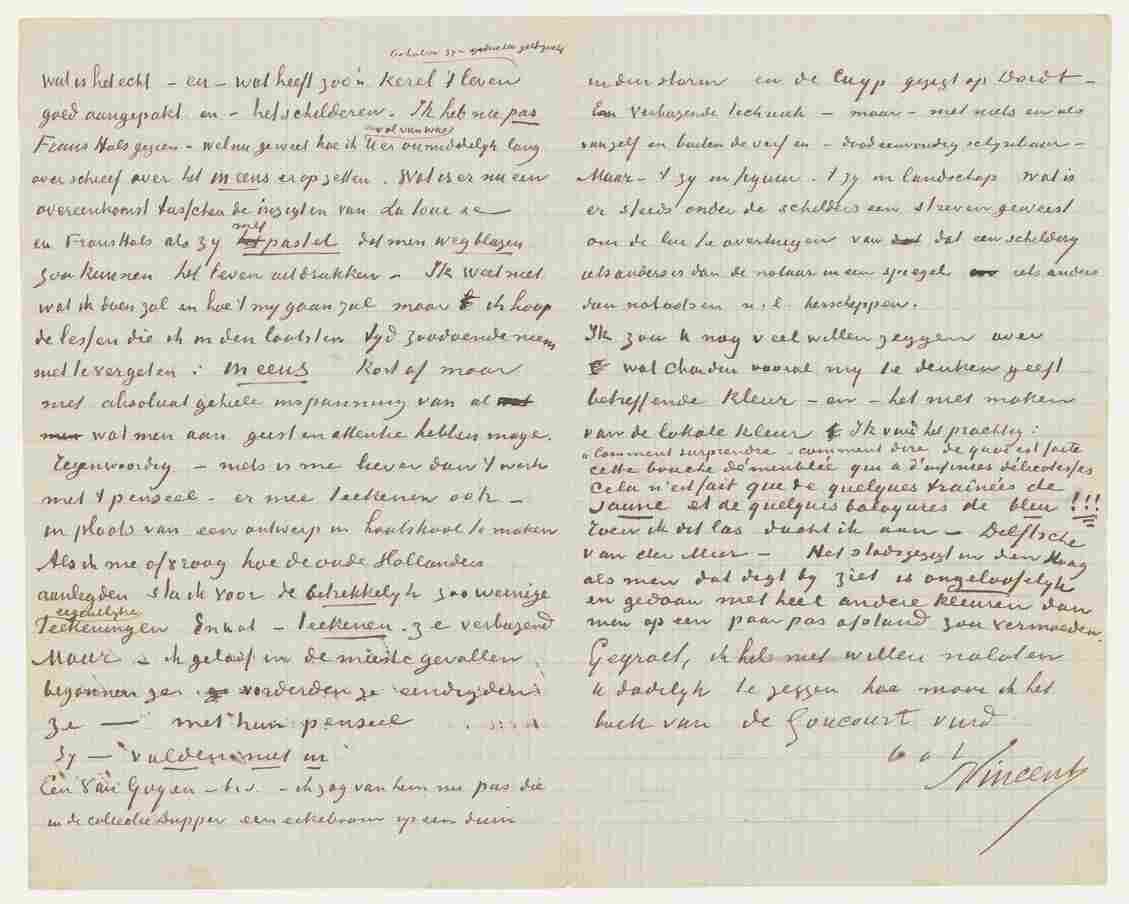 wat is het echt – en – wat heeft zoo'n kerel 't leven
goed aangepakt en – het schilderen. Ik heb nu pas
vol van was
Frans Hals gezien – welnu ge weet hoe ik U er onmiddelyk lang
over schreef over het in eens er op zetten. Wat is er nu een
overeenkomst tusschen de inzigten van La Tour
en Frans Hals als zy met pastel dat men wegblazen
zou kunnen het leven uitdrukken – Ik weet niet
wat ik doen zal en hoe 't my gaan zal maar ik hoop
de lessen die ik in den laatsten tyd zoodoende neem
niet te vergeten : in eens Kort af maar
met absoluut geheele inspanning van al
wat men aan geest en attentie hebben moge.
Tegenwoordig – niets is me liever dan 't werk
met 't penseel – er mee teekenen ook –
in plaats van een ontwerp in houtskool te maken
Als ik me afvraag hoe de oude Hollanders
aanlegden stuit ik voor de betrekkelyk zoo weinige
eigentlyke
Teekeningen En wat – teekenen ze verbazend
Maar – ik geloof in de meeste gevallen
begonnen ze vorderden ze eindigden
ze — met hun penseel
Zy — vulden niet in
Een van Goyen – b.v. – ik zag van hem nu pas die
in de collectie Dupper een eikeboom op een duin
in den storm en de Cuyp gezigt op Dordt –
Een Verbazende techniek – maar – met niets en als
van zelf en buiten de verf en – doodeenvoudig schynbaar –
Maar – 't zy in figuur 't zy in landschap wat is
er steeds onder de schilders een streven geweest
om de lui te overtuigen van dat een schildery
iets anders is dan de natuur in een spiegel iets anders
dan nabootsen n.l. herscheppen.
Ik zou U nog veel willen zeggen over
wat Chardin vooral my te denken geeft
betreffende kleur – en – het niet maken
van de lokale kleur Ik vind het prachtig :
„Comment surprendre – comment dire de quoi est faite
cette bouche démeublée qui a d'infinies délicatesses
Cela n'est fait que de quelques trainées de
jaune et de quelques balayures de bleu !!!
Toen ik dit las dacht ik aan – Delftsche
van der Meer – Het stadsgezigt in den Haag
als men dat digt by ziet is ongeloofelyk
en gedaan met heel andere kleuren dan
men op een paar pas afstand zou vermoeden.
Gegroet, ik heb niet willen nalaten
U dadelyk te zeggen hoe mooi ik het
boek van de Goncourt vind
b à t
Vincent